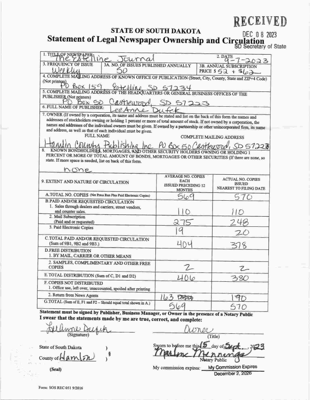 RECEIVED
DEC 08 2023
SD Secretary of State
STATE OF SOUTH DAKOTA
Statement of Legal Newspaper Ownership and Circulation
1. TITLE OF NEWSPAPER
The Estelline Journal
2. DATE
9-7-2023
3. FREQUENCY OF ISSUE
Weekly
3A. NO. OF ISSUES PUBLISHED ANNUALLY
50
3B. ANNUAL SUBSCRIPTION
PRICE $
4. COMPLETE MAILING ADDRESS OF KNOWN OFFICE OF PUBLICATION (Street, City, County, State and ZIP+4 Code)
(Not printers)
PO Box 159 Estelline SD 57234
5. COMPLETE MAILING ADDRESS OF THE HEADQUARTERS OR GENERAL BUSINESS OFFICES OF THE
PUBLISHER (Not printer)
PO Box 50 Castlewood, SD 57223
6. FULL NAME OF PUBLISHER:
LeeAnne Dufek
7. OWNER (If owned by a corporation, its name and address must be stated and list on the back of this form the names and
addresses of stockholders owning or holding 1 percent or more of total amount of stock. If not owned by a corporation, the
names and addresses of the individual owners must be given. If owned by a partnership or other unincorporated firm, its name
and address, as well as that of each individual must be given.
FULL NAME COMPLETE MAILING ADDRESS
Hamlin County Publishing Inc. PO Box 50 Castlewood, SD 57223
8. KNOWN BONDHOLDERS, MORTGAGES, AND OTHER SECURITY HOLDERS OWNING OR HOLDING 1
PERCENT OR MORE OF TOTAL AMOUNT OF BONDS, MORTGAGES OR OTHER SECURITIES (If there are none, so
state. If more space is needed, list on back of this form.
none
9. EXTENT AND NATURE OF CIRCULATION
AVERAGE NO. COPIES EACH ISSUED PRECEDING 12 MONTHS
ACTUAL NO. COPIES ISSUED NEAREST TO FILING DATE
A. TOTAL NO. COPIES 569 570
B. PAID AND/OR REQUESTED CIRCULATION
1. Sales through dealers and carriers, street vendors,
and counter sales. 110 110
2. Mail Subscription
(Paid and or requested) 275 248
3. Paid Electronic Copies 19 20
C. TOTAL PAID AND/OR REQUESTED CIRCULATION
(Sum of 9B1, 9B2 and 9B3.) 404 378
D. FREE DISTRIBUTION
1. BY MAIL, CARRIER OR OTHER MEANS
2. SAMPLES, COMPLIMENTARY AND OTHER FREE
COPIES 2 2
E. TOTAL DISTRIBUTION (Sum of C, D1 and D2) 406 380
F. COPIES NOT DISTRIBUTED
1. Office use, left over, unaccounted, spoiled after printing
2. Return from News Agents 163 190
G. TOTAL (Sum of E, F1 and F2 – Should equal total shown in A.) 569 570
Statement must be signed by Publisher, Business Manager, or Owner in the presence of a Notary Public
I swear that the statements made by me are true, correct, and complete:
LeeAnne Dufek Owner
(Signature) (Title)
State of South Dakota )
County of Hamlin )
(Seal)
Sworn to before me this 15 day of Sept. 2023
Notary Public
My commission expires: My Commission Expires
December 2, 2026